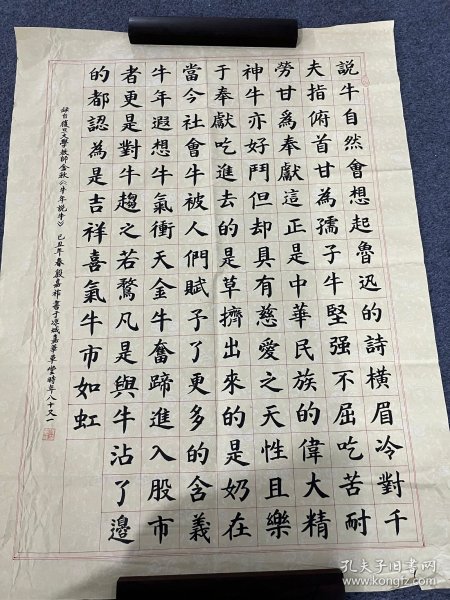 說牛自然會想起魯迅的詩橫眉冷對千
夫指俯首甘為孺子牛堅强不屈吃苦耐
勞甘爲奉獻這正是中華民族的偉大精
神牛亦好鬥但却具有慈愛之天性且樂
于奉獻吃進去的是草擠出來的是奶在
當今社會牛被人們賦予了更多的含義
牛年遐想牛氣衝天金牛奮蹄進入股市
者更是對牛趨之若鶩凡是與牛沾了邊
的都認為是吉祥喜氣牛市如虹
録自復旦大學教師金秋《牛年說牛》 己丑年春殷嘉祚書于涼城嘉華草堂時年八十又一
孔夫子旧书网
www.kongfz.com